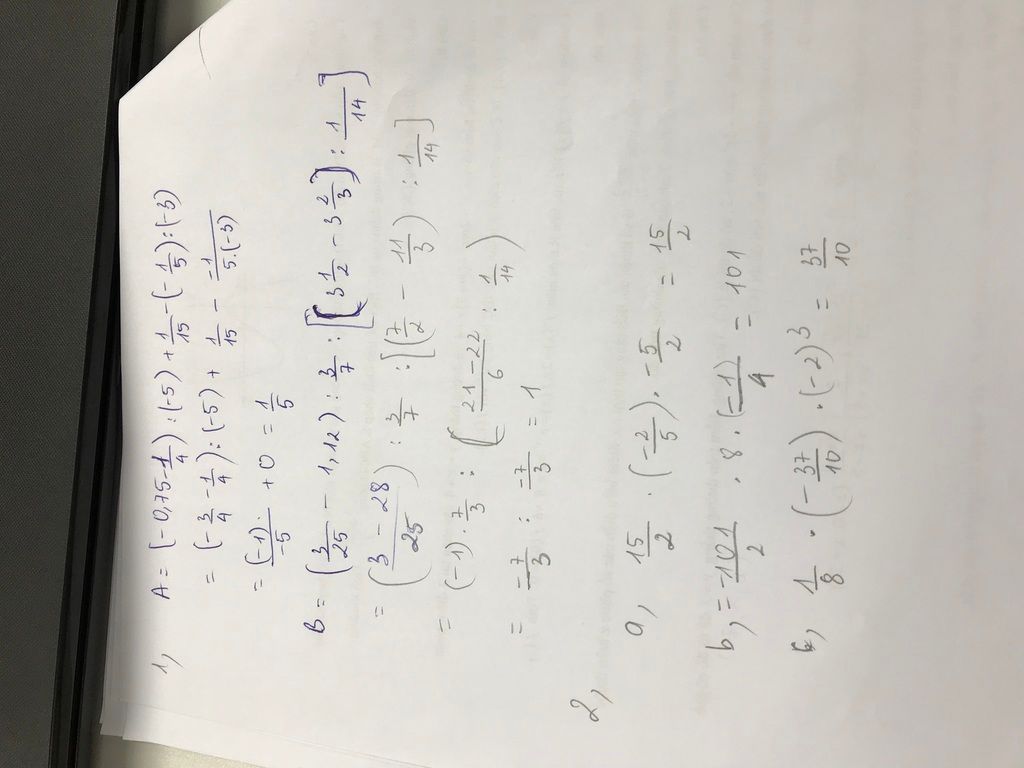 1, A = (-0,75-1/4) : (-5) + 1/15 - (-1/5) : (-3)
= (-3/4 - 1/4) : (-5) + 1/15 - -1/5.(-3)
= (-1)/-5 + 0 = 1/5
B = (3/25 - 1,12) : 3/7 : [(3 1/2 - 3 2/3) : 1/14]
= (3 - 28/25) : 3/7 : [(7/2 - 11/3) : 1/14]
= (-1) . 7/3 : (21-22/6 : 1/14)
= -7/3 : -7/3 = 1
2,
a, 15/2 . (-2/5) . -5/2 = 15/2
b, = -101/2 . 8 . (-1)/4 = 101
c, 1/8 . (-37/10) . (-2)³ = 37/10